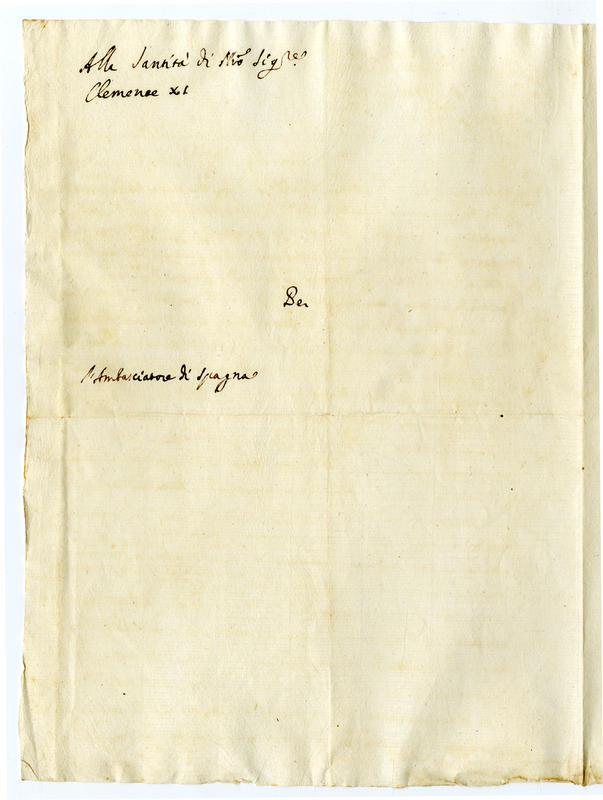 Alla Santità di Nro Sigre
Clemente XI
Per
l'Ambasciatore di Spagna